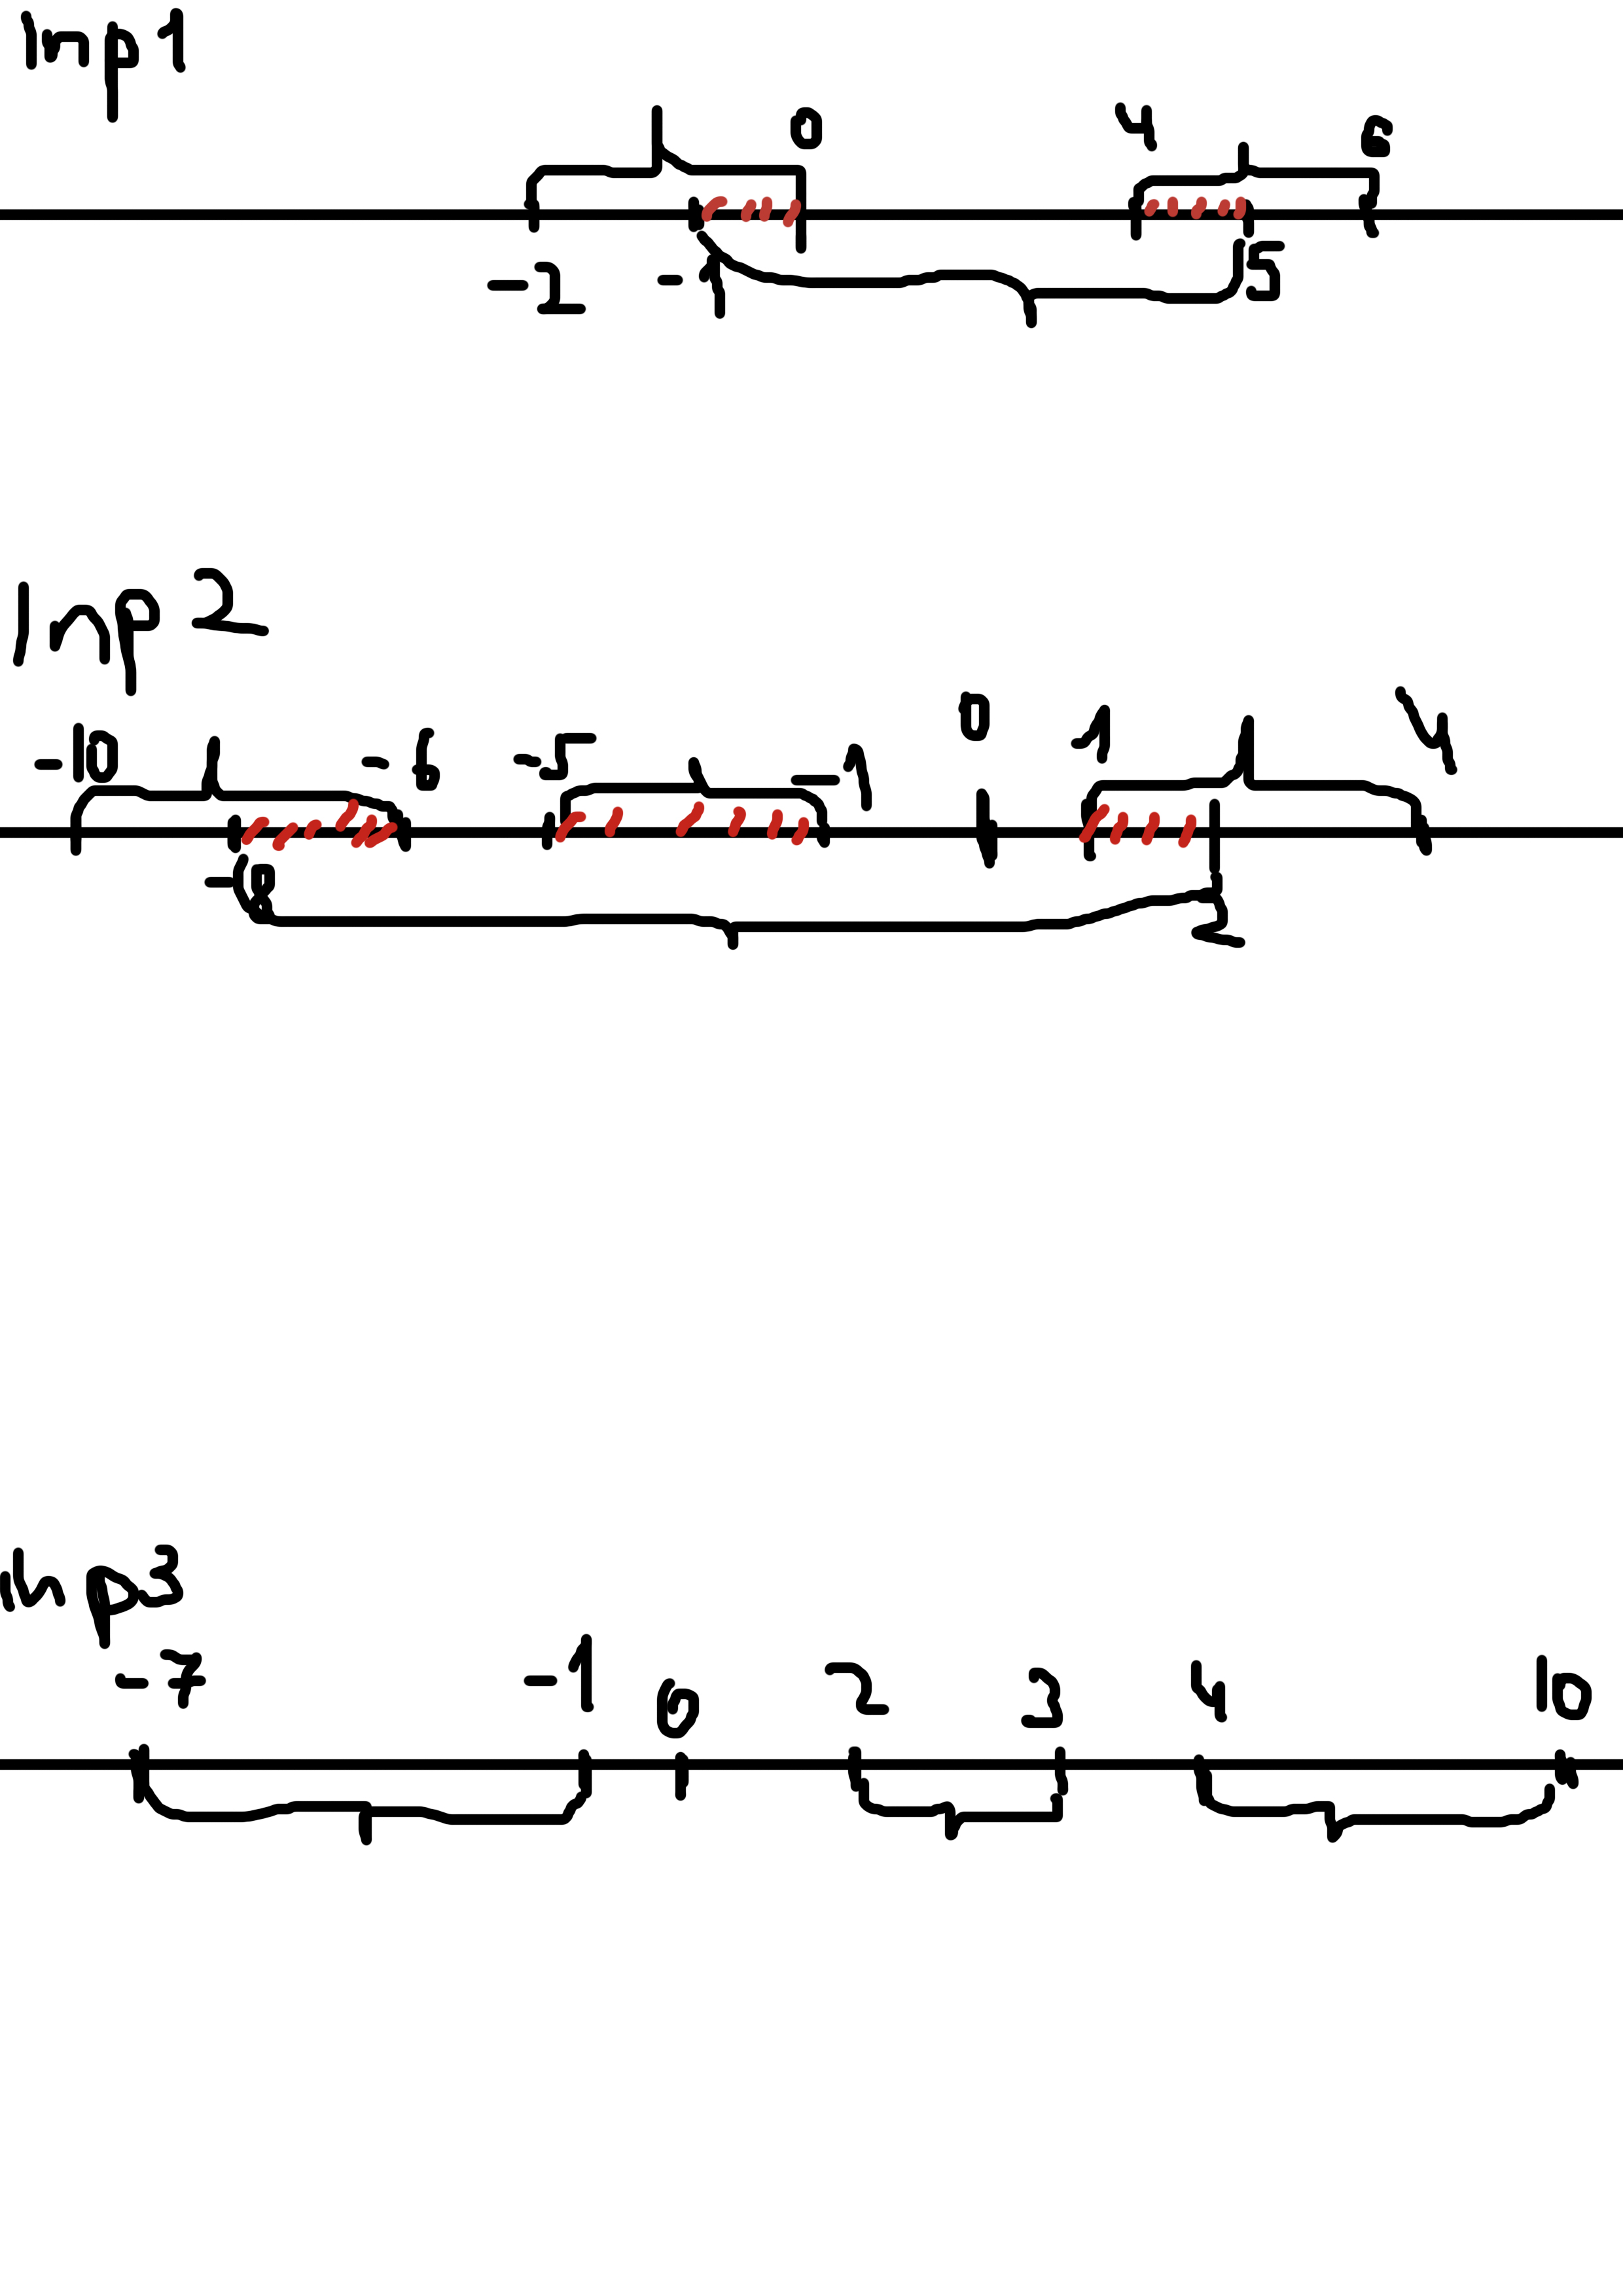 Inp 1
0 4 6
-2 -1 5
Inp 2
-10 -6 -5 -1 0 1 4
-8 2
Inp 3
-7 -1 0 2 3 4 10